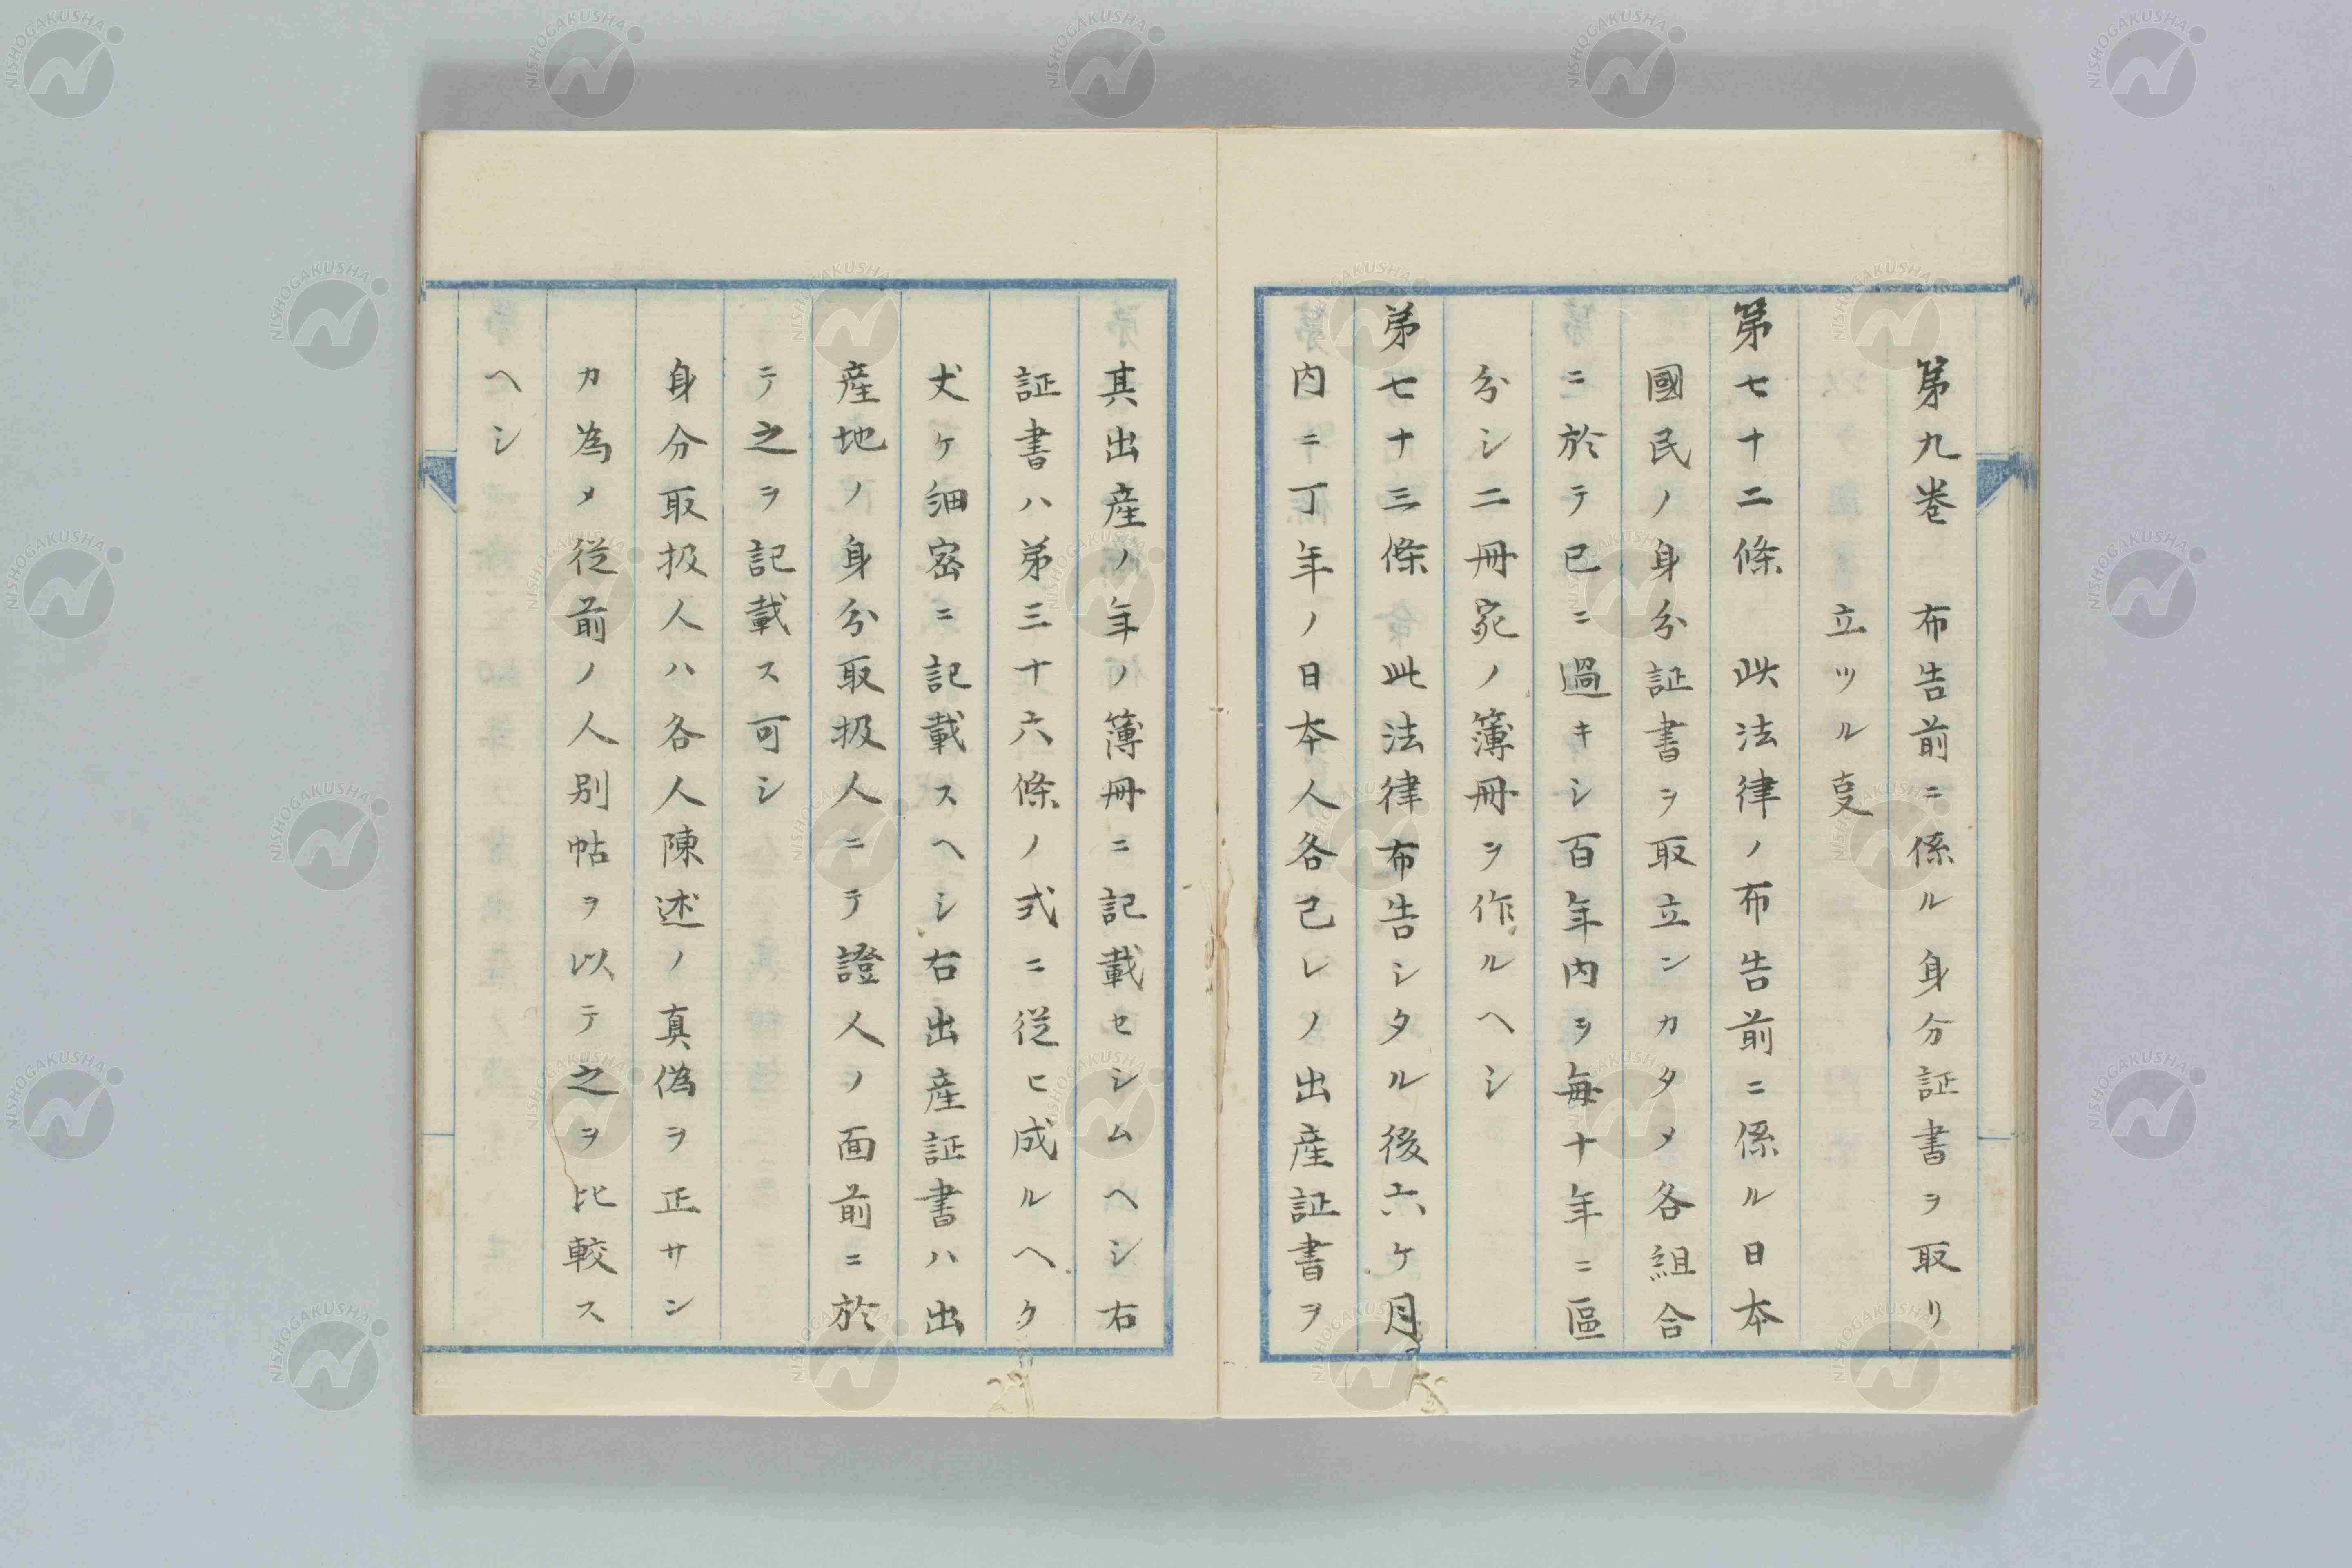 第九巻　布告前ニ係ル身分証書ヲ取リ
立ツル㕝
第七十二條　此法律ノ布告前ニ係ル日本
國民ノ身分証書ヲ取立ンカタメ各組合
ニ於テ已ニ過キシ百年内ヲ毎十年ニ區
分シ二冊宛ノ簿冊ヲ作ルヘシ
第七十三條　此法律布告シタル後六ケ月
内ニ丁年ノ日本人各己レノ出産証書ヲ
其出産ノ年ノ簿冊ニ記載セシムヘシ右
証書ハ第三十六條ノ式ニ従ヒ成ルヘク
丈ケ細密ニ記載スヘシ右出産証書ハ出
産地ノ身分取扱人ニテ證人ノ面前ニ於
テ之ヲ記載ス可シ
身分取扱人ハ各人陳述ノ真偽ヲ正サン
カ為メ従前ノ人別帖ヲ以テ之ヲ比較ス
ヘシ
NISHOGAKUSHA